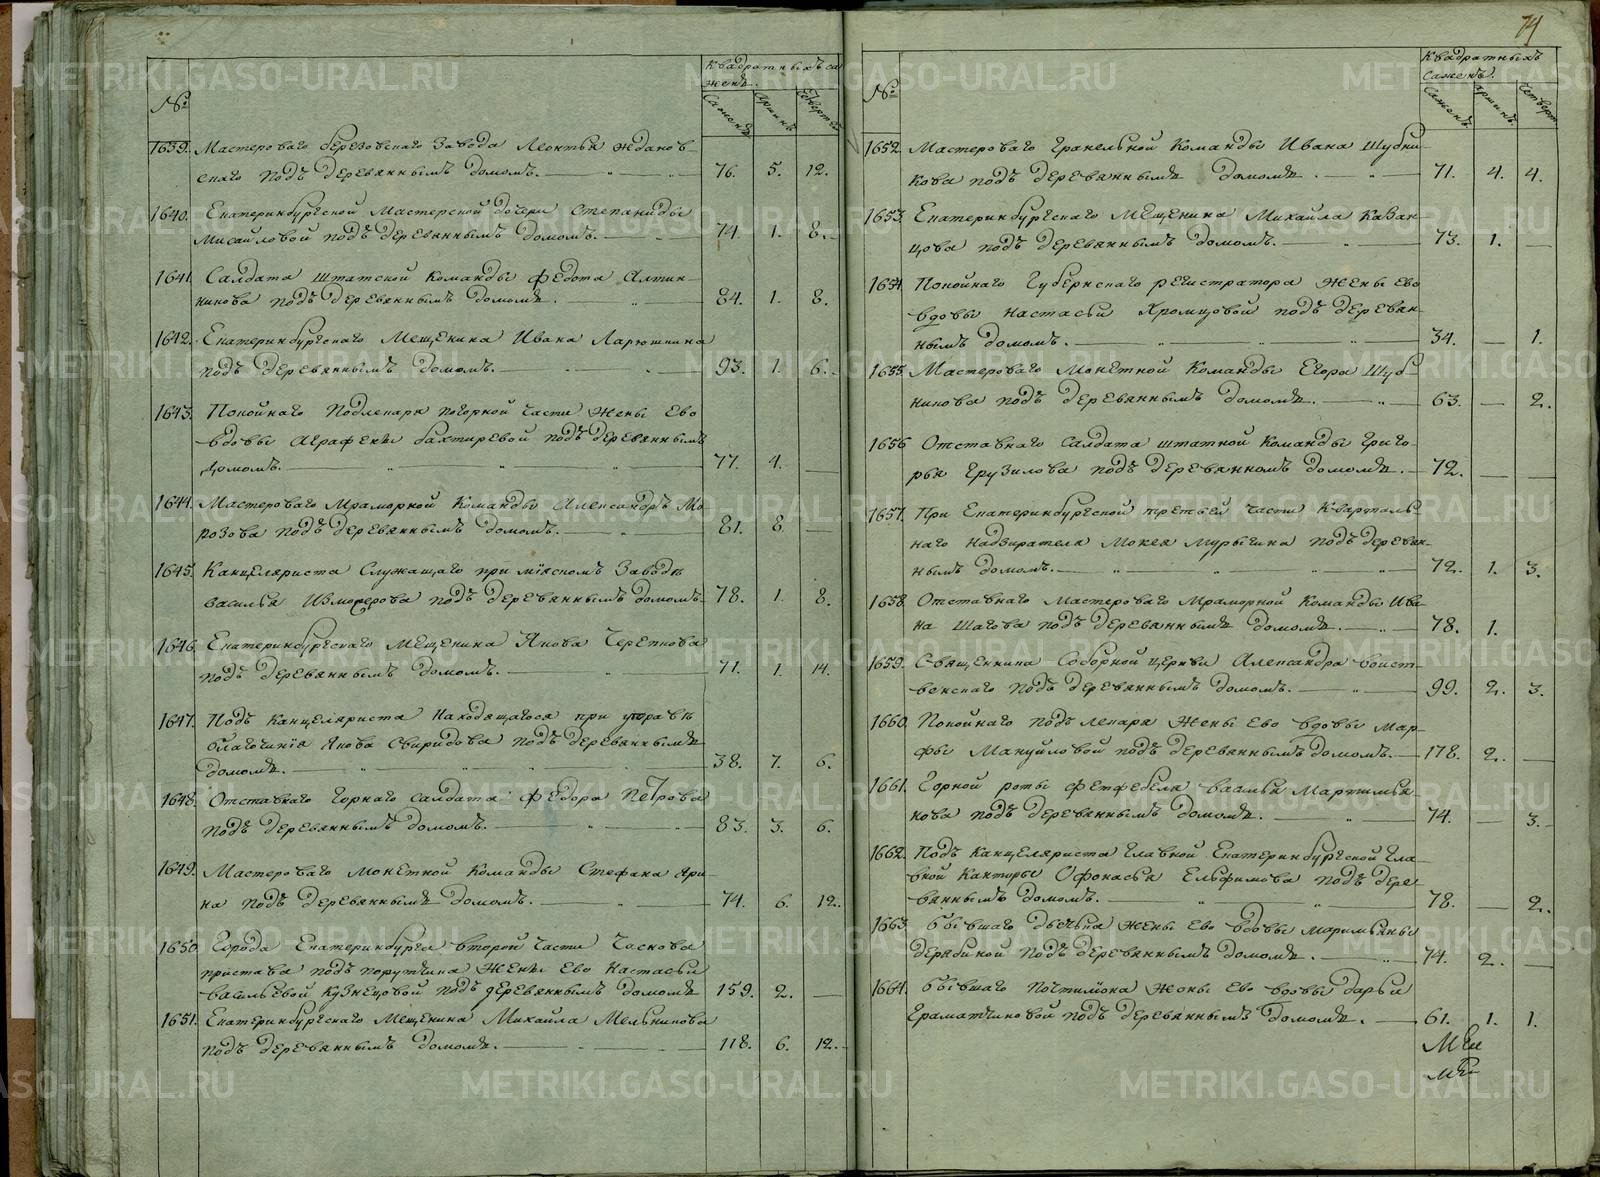 №
Квадратныхъ са
женъ.
Саженъ
Аршинъ
Четверт
1639. Мастероваго березовскаго Завода Леонтья Жданов-
скаго подъ деревяннымъ домомъ. 76. 5. 12.
1640. Екатеринбургской Мастерской дочери Степаниды
Мисаиловой подъ деревяннымъ домомъ. 74. 1. 8.
1641. Салдата Штатской команды Федота Алтин-
никова подъ деревяннымъ домомъ. 84. 1. 8.
1642. Екатеринбургскаго Мещенина Ивана Ларюшкина
подъ деревяннымъ домомъ. 93. 1. 6.
1643. Покойнаго Подлекаря погорной части Жены Ево
вдовы Аграфены бахтиревой подъ деревяннымъ
домомъ. 77. 4. —
1644. Мастероваго Мраморной Команды Александръ Мо
розова подъ деревяннымъ домомъ. 81. 8. —
1645. Канцеляриста Служащаго при мiяскомъ Заводѣ
василья Изможерова подъ деревяннымъ домомъ 78. 1. 8.
1646. Екатеринбургскаго Мещенина Якова Черепкова
подъ деревяннымъ домомъ. 71. 1. 14.
1647. Подъ канцеляриста Находящагося при управѣ
благочинiя Якова Свиридова подъ деревяннымъ
домомъ. 38. 7. 6.
1648. Отставнаго Горнаго салдата Федора Петрова
подъ деревяннымъ домомъ. 83. 3. 6.
1649. Мастероваго монетной Команды Стефана Яри-
на подъ деревяннымъ домомъ. 74. 6. 12.
1650. Города Екатеринбурга второй части Часнова
пристава подъ порутчика Жены Ево Настасьи
васильевой кузнецовой подъ деревяннымъ домомъ 159. 2. —
1651. Екатеринбургскаго Мещенина Михаила Мельникова
подъ деревяннымъ домомъ. 118. 6. 12.
74
№
Квадратныхъ
саженъ.
Саженъ.
аршинъ.
Четверт
1652. Мастероваго Гранельной Команды Ивана Шубни-
кова подъ деревяннымъ домомъ. 71. 4. 4.
1653. Екатеринбургскаго Мещенина Михаила Казан
цова подъ деревяннымъ домомъ. 73. 1. —
1654. Покойнаго Губернскаго регистратора Жены Ево
вдовы Настасьи Хромцовой подъ деревян-
нымъ домомъ. 34. — 1.
1655. Мастероваго Монетной Команды Егора Шуб
никова подъ деревяннымъ домомъ. 63. — 2.
1656 Отставнаго салдата штатной Команды Григо-
рья Грузилова подъ деревянномъ домомъ. 72. — —
1657. При Екатеринбургской третьей части Кварталь-
наго Надзирателя Мокея Мурыгина подъ деревян-
нымъ домомъ. 72. 1. 3.
1658. Отставнаго Мастероваго Мраморной Команды Ива-
на Шагова подъ деревяннымъ домомъ. 78. 1.
1659. Священника Соборной церкви Александра воист-
венскаго подъ деревяннымъ домомъ. 99. 2. 3.
1660. Покойнаго подъ лекаря Жены Ево вдовы Мар-
фы Мануйловой подъ деревяннымъ домомъ. 178. 2. —
1661. Горной роты Фетфебеля василья Мартилья-
нова подъ деревяннымъ домомъ. 74. — 3.
1662. Подъ Канцеляриста Главной Екатеринбургской гла-
вной канторы Офонасья Ельфимова подъ дере-
вяннымъ домомъ. 78. — 2.
1663. бывшаго дьечька Жены Ево вдовы Маримьяны
дерябиной подъ деревяннымъ домомъ. 74. 2. —
1664. бывшаго почтилiона Жены Ево вдовы дарьи
Граматчиковой подъ деревяннымъ домомъ. 61. 1. 1.
METRIKI.GASO-URAL.RU